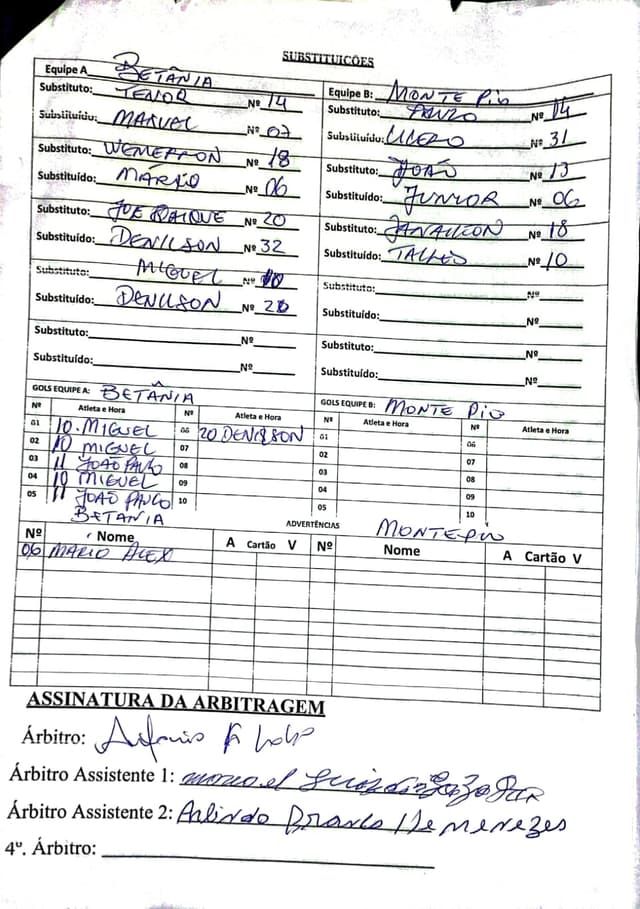 SUBSTITUIÇÕES
Equipe A BETÂNIA
Substituto: TENOR Nº 14
Substituído: MANUEL Nº 07
Substituto: WEMERSON Nº 18
Substituído: MARIO Nº 06
Substituto: Nº 20
Substituído: DENILSON Nº 32
Substituto: MIGUEL Nº 10
Substituído: DENILSON Nº
Substituto: Nº
Substituído: Nº
Equipe B: MONTE PIO
Substituto: Nº 14
Substituído: Nº 31
Substituto: JOÃO Nº 13
Substituído: JUNIOR Nº 06
Substituto: Nº 18
Substituído: Nº 10
Substituto: Nº
Substituído: Nº
Substituto: Nº
Substituído: Nº
GOLS EQUIPE A: BETÂNIA
Nº Atleta e Hora Nº Atleta e Hora
01 10. MIGUEL 06 20 DENILSON
02 10 MIGUEL 07
03 11 JOAO PAULO 08
04 10 MIGUEL 09
05 11 JOAO PAULO 10
GOLS EQUIPE B: MONTE PIO
Nº Atleta e Hora Nº Atleta e Hora
01 06
02 07
03 08
04 09
05 10
ADVERTÊNCIAS
BETANIA
Nº Nome A Cartão V
06 MARIO ALEX
MONTEPIO
Nº Nome A Cartão V
ASSINATURA DA ARBITRAGEM
Árbitro: Antonio
Árbitro Assistente 1:
Árbitro Assistente 2: Arlindo Branco De MENEZES
4º. Árbitro: